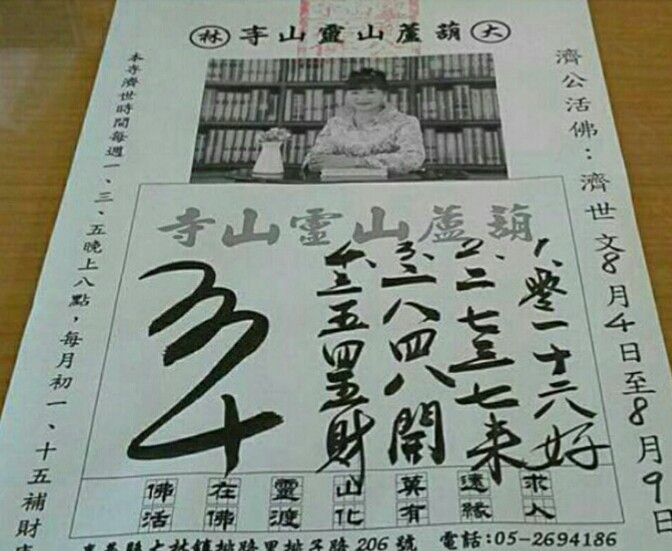 大 葫蘆山靈山寺 林
濟公活佛：濟世文8月4日至8月9日
葫蘆山靈山寺
1.零一十六好
2.二七三七来
3.一八四八開
4.三五四五財
佛在靈山莫遠求
活佛渡化有緣人
本寺濟世時間每週一、三、五晚上八點，每月初一、十五補財
大林鎮排路里排子路206號 電話:05-2694186